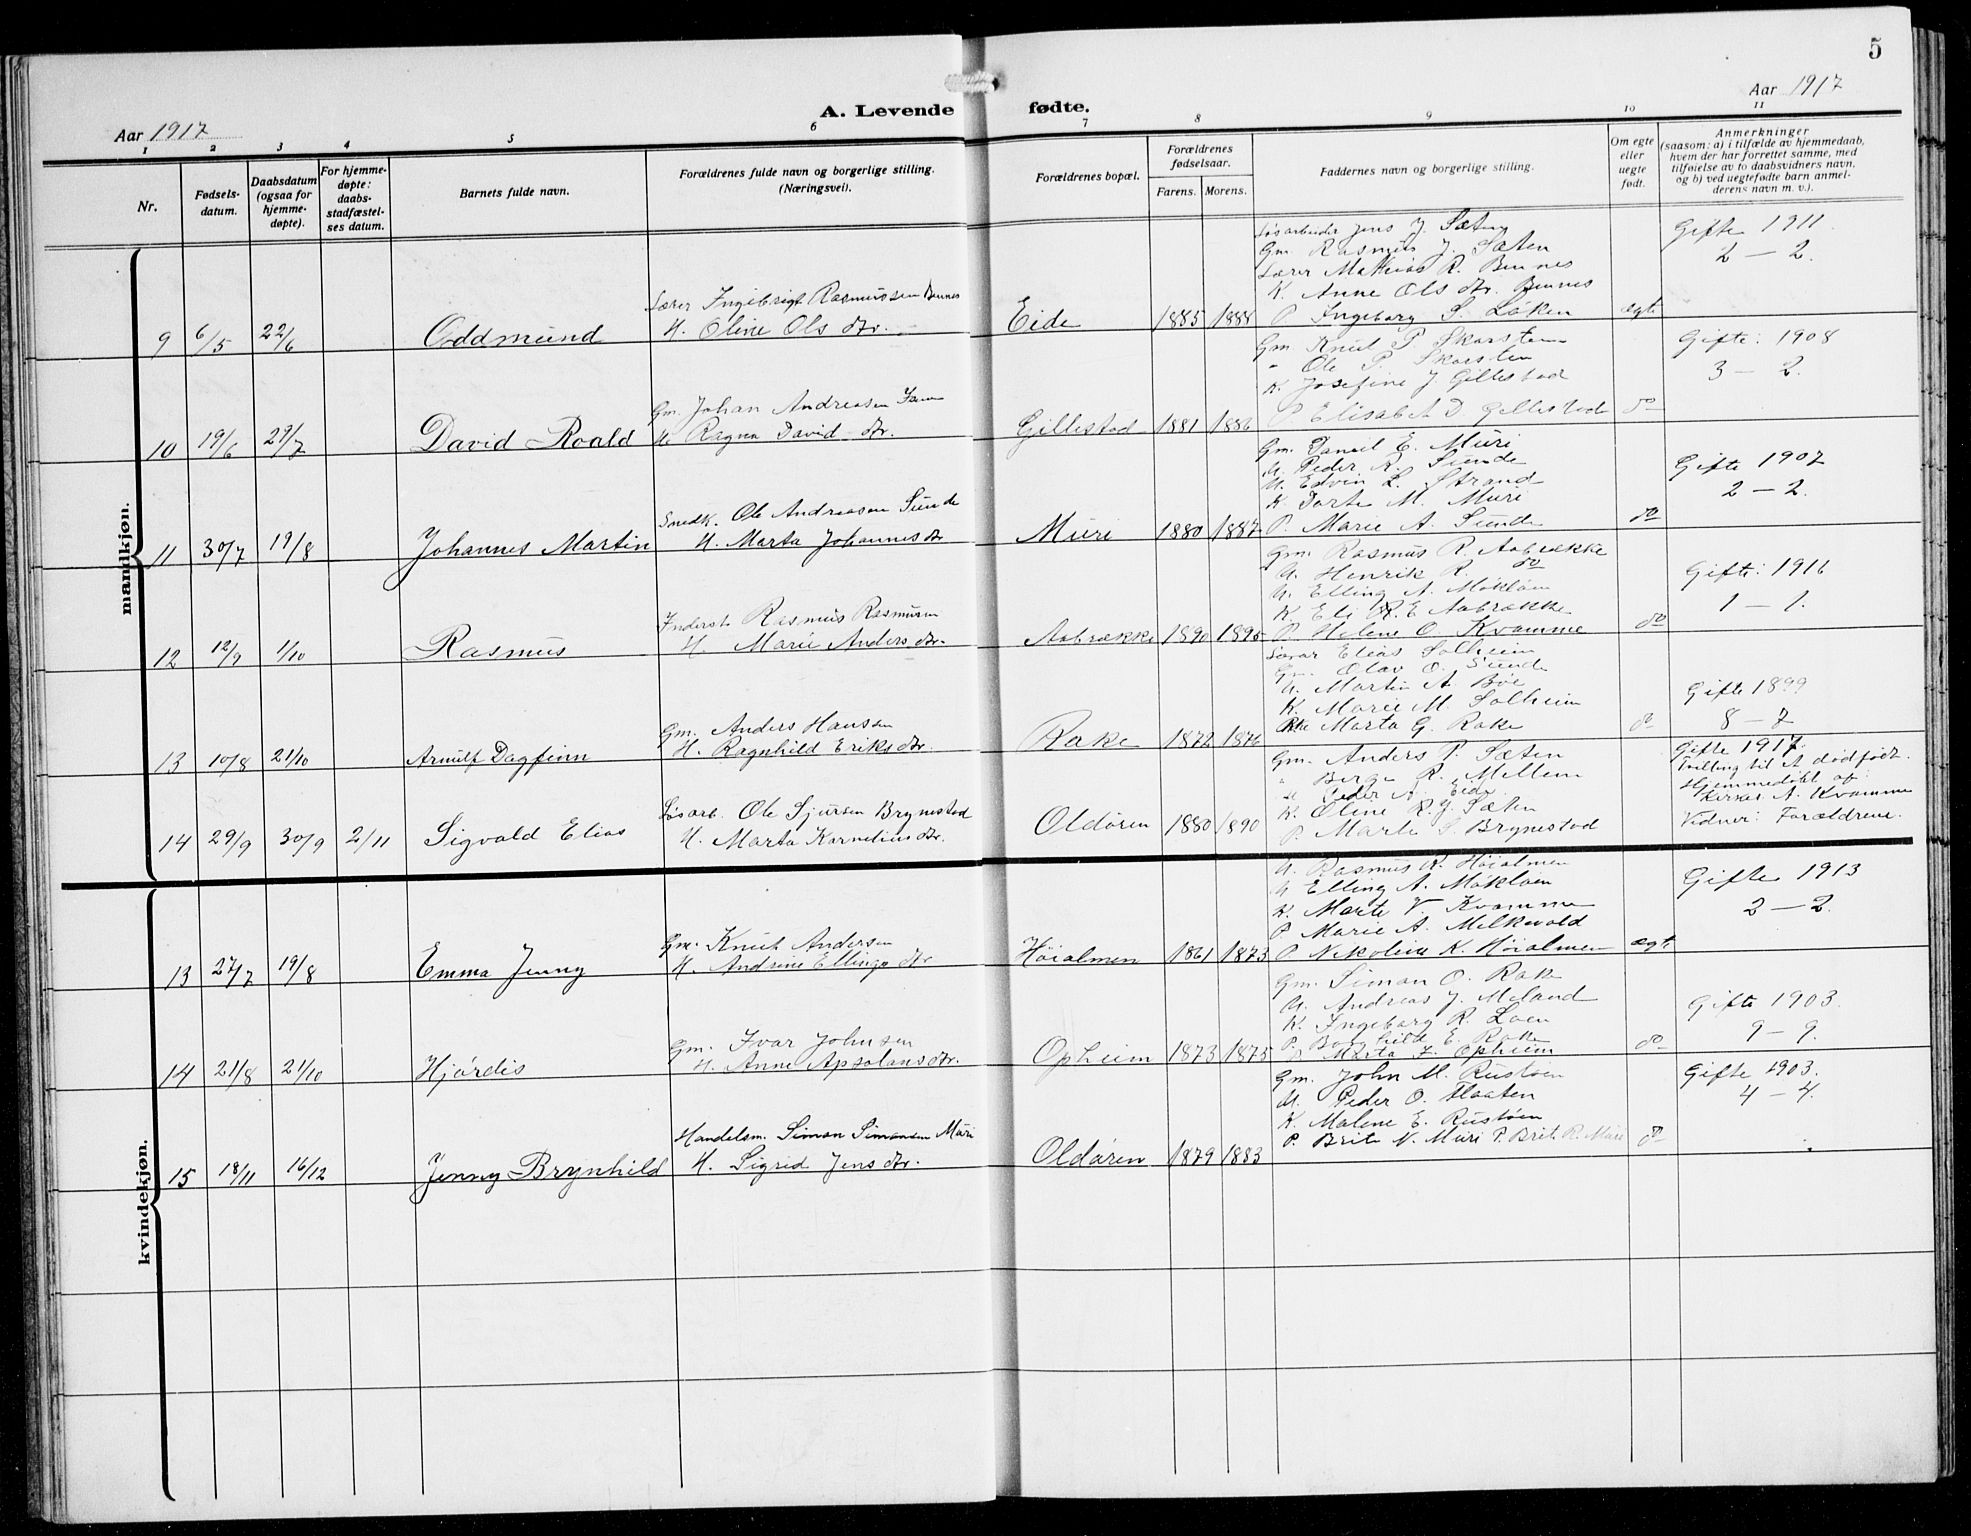 5
Aar 1917
A. Levende fødte.
Aar 1917
1 2 3 4 5 6 7 8 9 10 11
Nr.
Fødsels-
datum.
Daabsdatum
(ogsaa for
hjemme-
døpte).
For hjemme-
døpte:
daabs-
stadfæstel-
ses datum.
Barnets fulde navn.
Forældrenes fulde navn og borgerlige stilling.
(Næringsvei).
Forældrenes bopæl.
Forældrenes
fødselsaar.
Farens. Morens.
Faddernes navn og borgerlige stilling.
Om egte
eller
uegte
født.
Anmerkninger
(saasom: a) i tilfælde av hjemmedaab,
hvem der har forrettet samme, med
tilføielse av to daabsvidners navn,
og b) ved uegtefødte barn anmel-
derens navn m. v.).
mandkjøn.
9 6/5 22/6 Oddmund
Lærer Ingebrigt Rasmussen Bennes
H. Oline Ols dtr.
Eide 1885 1888
Løsarbeider Jens J. Sæten
Gm. Rasmus J. Sæten
Lærer Mathias R. Bennes
K. Anne Ols dtr. Bennes
P. Ingeborg S. Løken
ægte
Gifte 1911
2 — 2.
10 19/6 29/7 David Roald
Gm. Johan Andreasen
H. Ragna David dtr.
Gillestad 1881 1886
Gm. Knut P. Skarsten
" Ole P. Skarsten
K. Josefine J Gillestad
P. Elisabet D. Gillestad
do
Gifte: 1908
3 — 2.
11 30/7 19/8 Johannes Martin
Snedk. Ole Andreasen Sunde
H. Marta Johannes dtr
Muri 1880 1887
Gm. Daniel E. Muri
U. Peder R. Sunde
U. Edvin L. Strand
K. Dorte M. Muri
P. Marie A. Sunde
do
Gifte 1907
2 — 2.
12 12/9 1/10 Rasmus
Inderst Rasmus Rasmussen
H. Marie Anders dtr.
Aabrække 1890 1895
Gm. Rasmus R. Aabrække
U. Henrik R. do
U. Elling A. Møkløen
K. Eli R. E Aabrække
P. Helene O. Kvamme
do
Gifte: 1916
1 — 1.
13 10/8 21/10 Arnulf Dagfinn
Gm. Anders Hansen
H. Ragnhild Eriks dtr.
Rake 1872 1876
Lærer Elias Solheim
Gm. Olav O. Sunde
U. Martin A. Bøe
K. Marie M. Solheim
Pike Marta G. Rake
do
Gifte 1899
8 — 7
14 29/9 30/9 2/11 Sigvald Elias
Løsarb. Ole Sjursen Brynestad
H. Marta Kornelius dtr.
Oldøren 1880 1890
Gm. Anders P. Sæten
" Berge R. Mellem
U. Peder A. Eide
K. Oline R. J. Sæten
P. Marte S. Brynestad
Gifte 1917.
Tvilling til A dødfødt.
Hjemmedøbt af:
Kirkes. A. Kvamme
Vidner: Forældrene.
kvindekjøn.
13 27/7 19/8 Emma Jenny
Gm. Knut Andersen
H. Andrine Ellings dtr
Høialmen 1861 1873
U. Rasmus K. Høialmen
U Elling A. Møkløen
K. Marte V. Kvamme
P Marie A. Melkevold
P Nikoline K. Høialmen
ægte
Gifte 1913
2 — 2.
14 21/8 21/10 Hjørdis
Gm. Ivar Johnsen
H. Anne Apsolons dtr.
Opheim 1873 1875
Gm. Simon O. Rake
U. Andreas J. Meland
K. Ingeborg R. Loen
P. Borghild E. Rake
P Marta I. Opheim
do
Gifte 1903.
9 — 9.
15 18/11 16/12 Jenny Brynhild
Handelsm. Simon Simonsen Muri
H. Sigrid Jens dtr.
Oldøren 1879 1883
Gm. John M. Rustøen
U. Peder O. Flaaten
K. Malene E. Rustøen
P. Brite N. Muri P. Brit. R. Muri
do
Gifte 1903.
4 — 4.